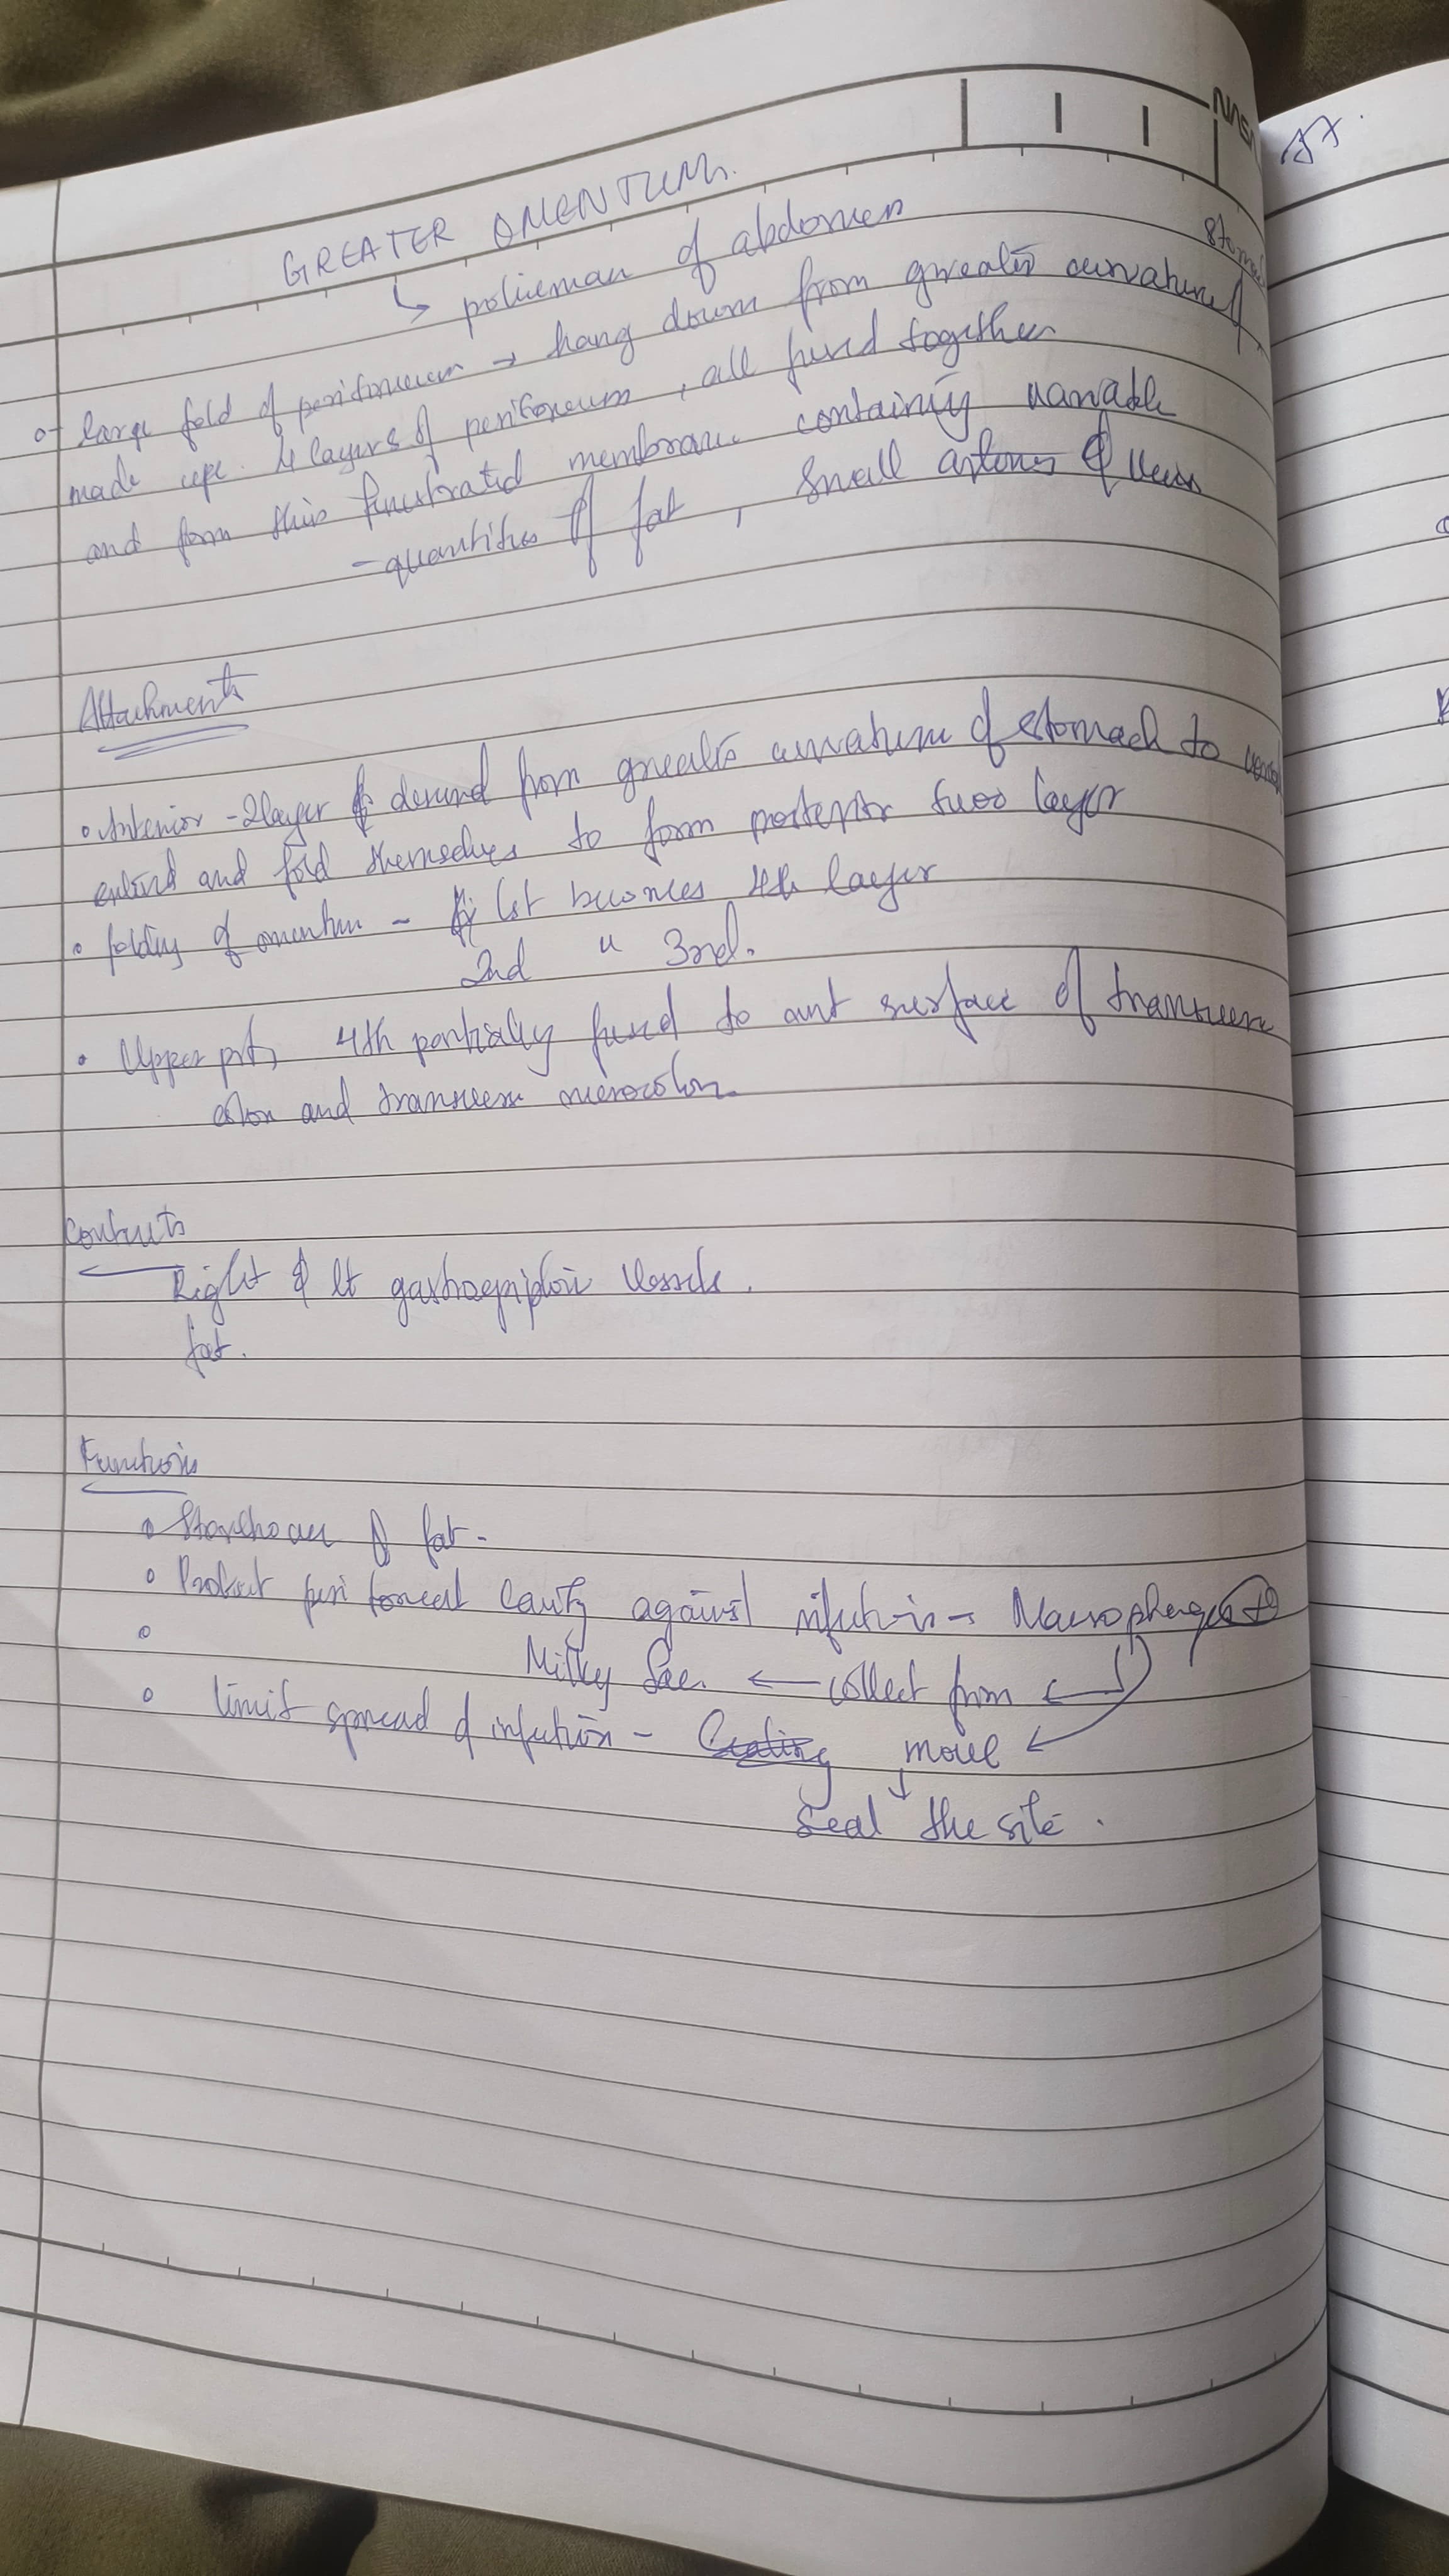 NASA
GREATER OMENTUM.
↳ policeman of abdomen
large fold of peritoneum → hang down from greater curvature of
made upe. 4 layers of peritoneum, all fused together
and form this fenestrated membrane containing variable
- quantities of fat, small arteries & veins
Attachments
• Anterior - 2layer descend from greater curvature of stomach to
extend and fold themselves to form posterior two layer
• folding of omentum - 1st becomes 4th layer
2nd " 3rd.
• Upper prt, 4th partially fused to ant surface of transverse
colon and transverse mesocolon.
Contents
Right & lt gastroepiploic vessels.
fat.
Functions
• Storehouse of fat.
• Protect peritoneal cavity against infection → Macrophages
Milky ← collect from ←
• limit spread of infection - move ←
↓
Seal the site.